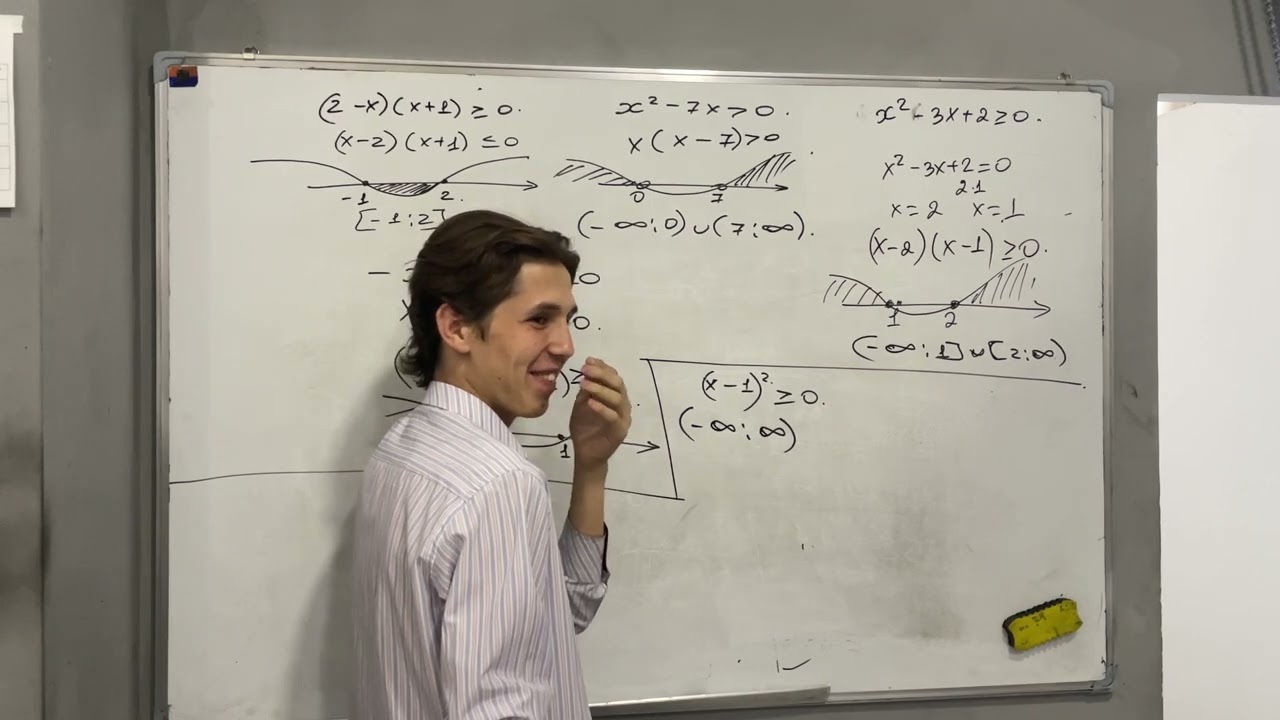 (2-x)(x+1) ≥ 0.
(x-2)(x+1) ≤ 0
-1 2.
[-1;2]
x² - 7x > 0.
x(x-7) > 0
0 7
(-∞;0)∪(7;∞).
x² - 3x + 2 ≥ 0.
x² - 3x + 2 = 0
2·1
x = 2 x = 1
(x-2)(x-1) ≥ 0.
1 2
(-∞;1]∪[2;∞)
0.
1
(x-1)² ≥ 0.
(-∞;∞)